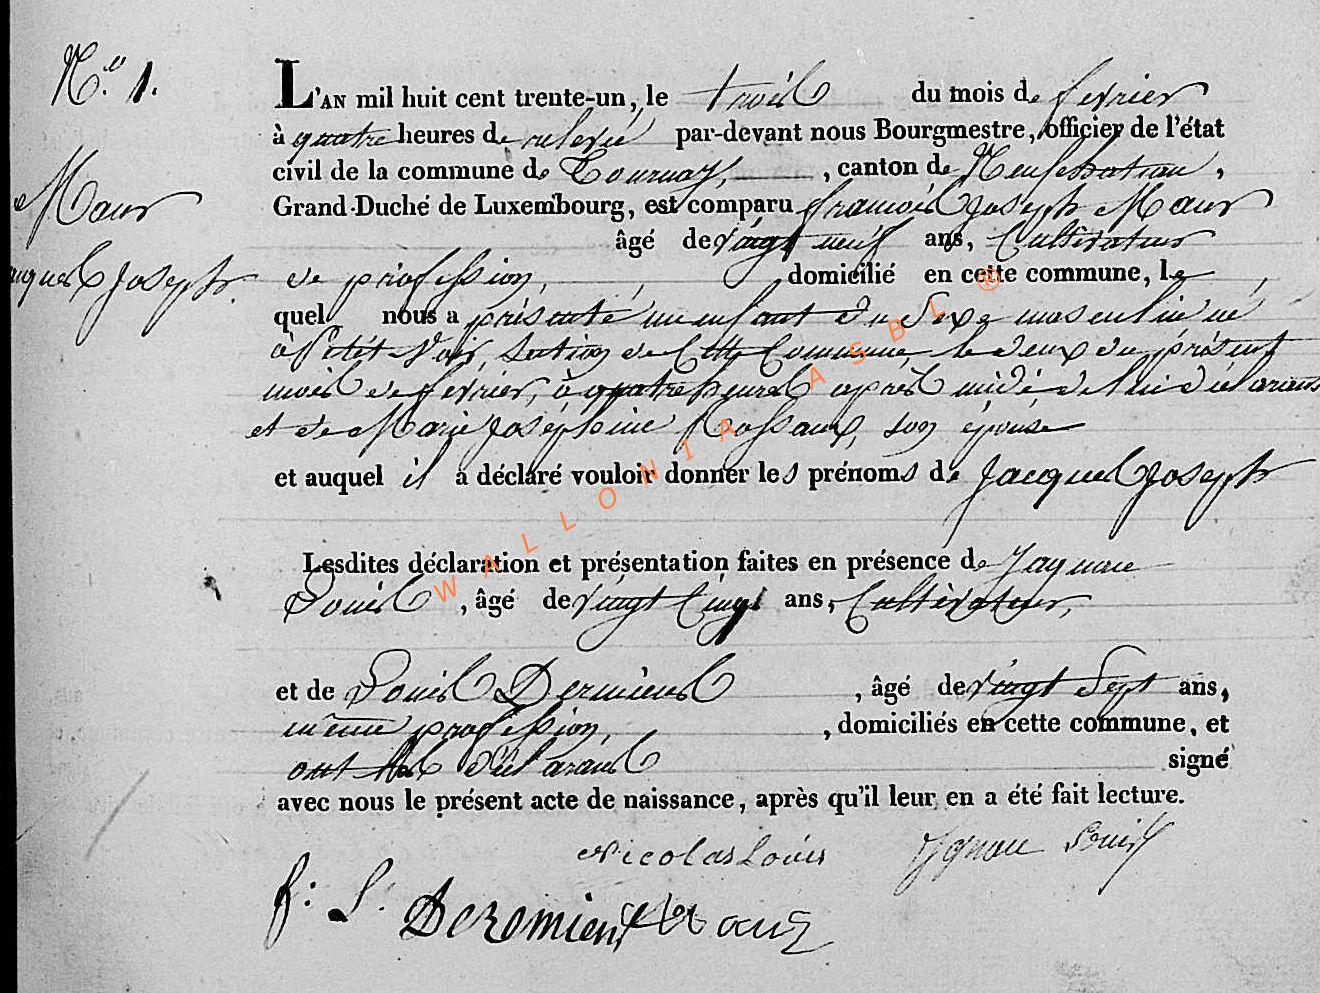 N.o 1.
L'AN mil huit cent trente-un, le trois du mois de fevrier
à quatre heures de relevée par-devant nous Bourgmestre, officier de l'état
civil de la commune de Tournay, , canton de Neufchateau,
Maus
Grand-Duché de Luxembourg, est comparu francois Joseph Maus
âgé de vingt neuf ans, Cultivateur
Jacques Joseph.
de profession, domicilié en cette commune, le
quel nous a présenté un enfant du Sexe masculin né
à Petit Voir, Section de Cette Commune, le deux du présent
mois de fevrier, à quatre heures après midi de lui déclarant
et de Marie Joséphine Rossaux, son épouse
et auquel il a déclaré vouloir donner les prénoms de Jacques Joseph
Lesdites déclaration et présentation faites en présence de
Louis , âgé de vingt Cinq ans, Cultivateur,
et de Louis Dermiens , âgé de vingt Sept ans,
même profession, , domiciliés en cette commune, et
ont les déclarans signé
avec nous le présent acte de naissance, après qu'il leur en a été fait lecture.
Nicolas Louis
f: L: Dezomient
WALLONIA ASBL ®